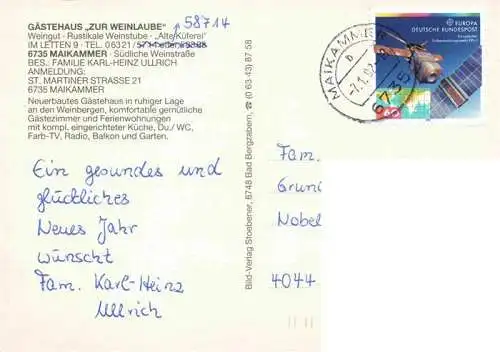 GÄSTEHAUS „ZUR WEINLAUBE" 58714
Weingut · Rustikale Weinstube · „Alte Küferei"
IM LETTEN 9 · TEL. 06321 /
6735 MAIKAMMER · Südliche Weinstraße
BES.: FAMILIE KARL-HEINZ ULLRICH
ANMELDUNG:
ST. MARTINER STRASSE 21
6735 MAIKAMMER
Neuerbautes Gästehaus in ruhiger Lage
an den Weinbergen, komfortable gemütliche
Gästezimmer und Ferienwohnungen
mit kompl. eingerichteter Küche, Du./WC,
Farb-TV, Radio, Balkon und Garten.
Ein gesundes und
glückliches
Neues Jahr
wünscht
Fam. Karl-Heinz
Ullrich
Bild-Verlag Stoebener, 6748 Bad Bergzabern, ☎ (0 63 43) 87 58
MAIKAMMER
6735
EUROPA
DEUTSCHE BUNDESPOST
60
Fam.
Grün
Nobel
4044